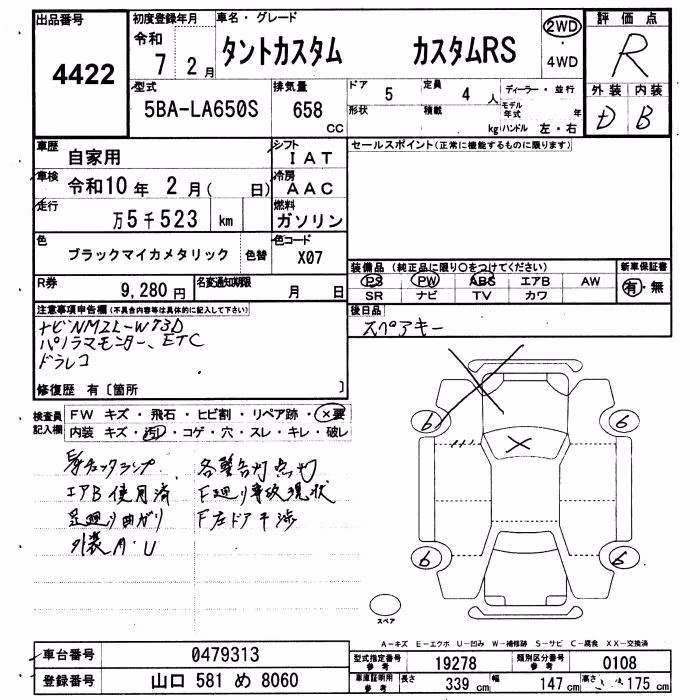 出品番号
4422
初度登録年月
令和 7 2月
車名・グレード
タントカスタム カスタムRS
2WD
・
4WD
評価点
R
外装 内装
D B
型式
5BA-LA650S
排気量
658 cc
ドア 5
定員 4 人
形状
積載 kg
ディーラー・並行
モデル年式 年
ハンドル 左・右
車歴 自家用
シフト IAT
車検 令和10年 2月( 日)
冷房 AAC
走行 万5千523 km
燃料 ガソリン
色 ブラックマイカメタリック 色替
色コード X07
R券 9,280円
名変通知期限 月 日
セールスポイント(正常に機能するものに限ります)
装備品(純正品に限り○をつけてください)
PS PW ABS エアB AW
SR ナビ TV カワ
新車保証書
有・無
後日品
スペアキー
注意事項申告欄(不具合内容等は具体的に記入して下さい)
ナビNMZL-W73D
パノラマモニター、ETC
ドラレコ
修復歴 有〔箇所 〕
検査員記入欄
FW キズ・飛石・ヒビ割・リペア跡・×要
内装 キズ・汚れ・コゲ・穴・スレ・キレ・破レ
チェックランプ 各警告灯点灯
エアB使用済 F廻り事故現状
足廻り曲がり F左ドア干渉
外装A・U
6 6
6 6
スペア
A-キズ E-エクボ U-凹み W-補修跡 S-サビ C-腐食 XX-交換済
車台番号 0479313
登録番号 山口 581 め 8060
型式指定番号 参考 19278
類別区分番号 参考 0108
車庫証明用 参考 長さ 339 cm 幅 147 cm 高さ 175 cm